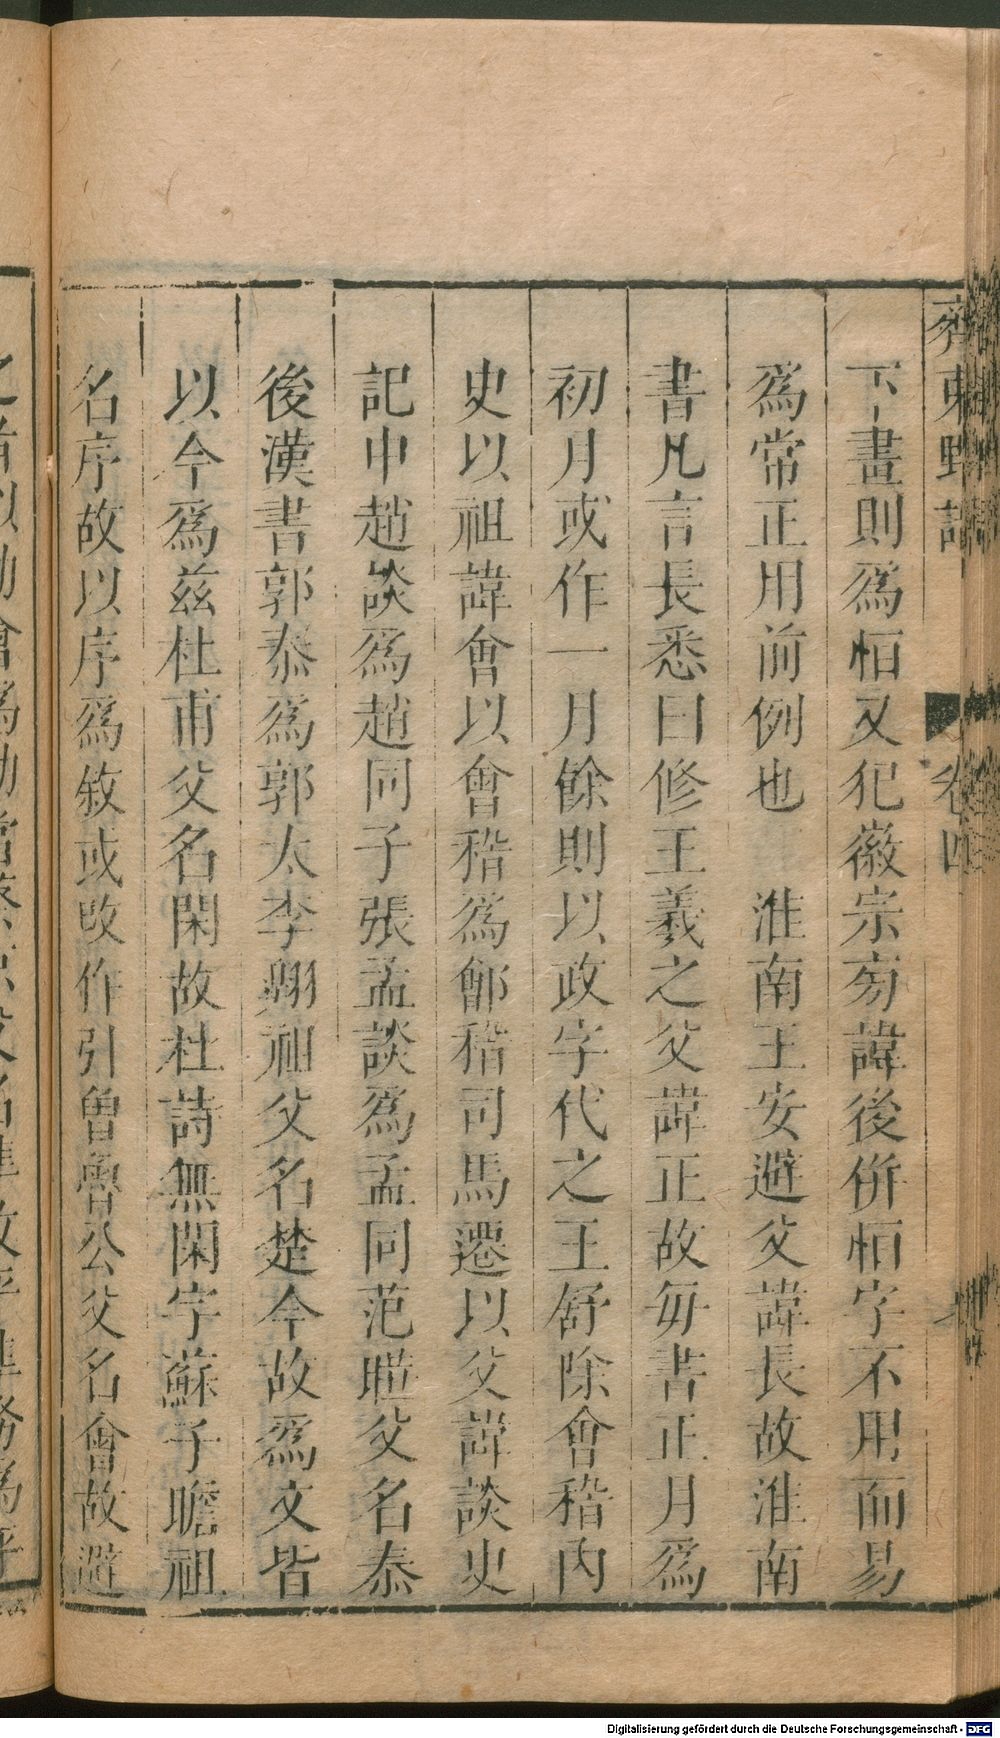 齊東野語 卷四
下畫則爲恒又犯徽宗旁諱後倂恒字不用而易
爲常正用前例也　淮南王安避父諱長故淮南
書凡言長悉曰修王羲之父諱正故每書正月爲
初月或作一月餘則以政字代之王舒除會稽內
史以祖諱會以會稽爲鄶稽司馬遷以父諱談史
記中趙談爲趙同子張孟談爲孟同范曄父名泰
後漢書郭泰爲郭太李翺祖父名楚今故爲文皆
以今爲茲杜甫父名閑故杜詩無閑字蘇子瞻祖
名序故以序爲敘或改作引曾魯公父名會故避
Digitalisierung gefördert durch die Deutsche Forschungsgemeinschaft - DFG